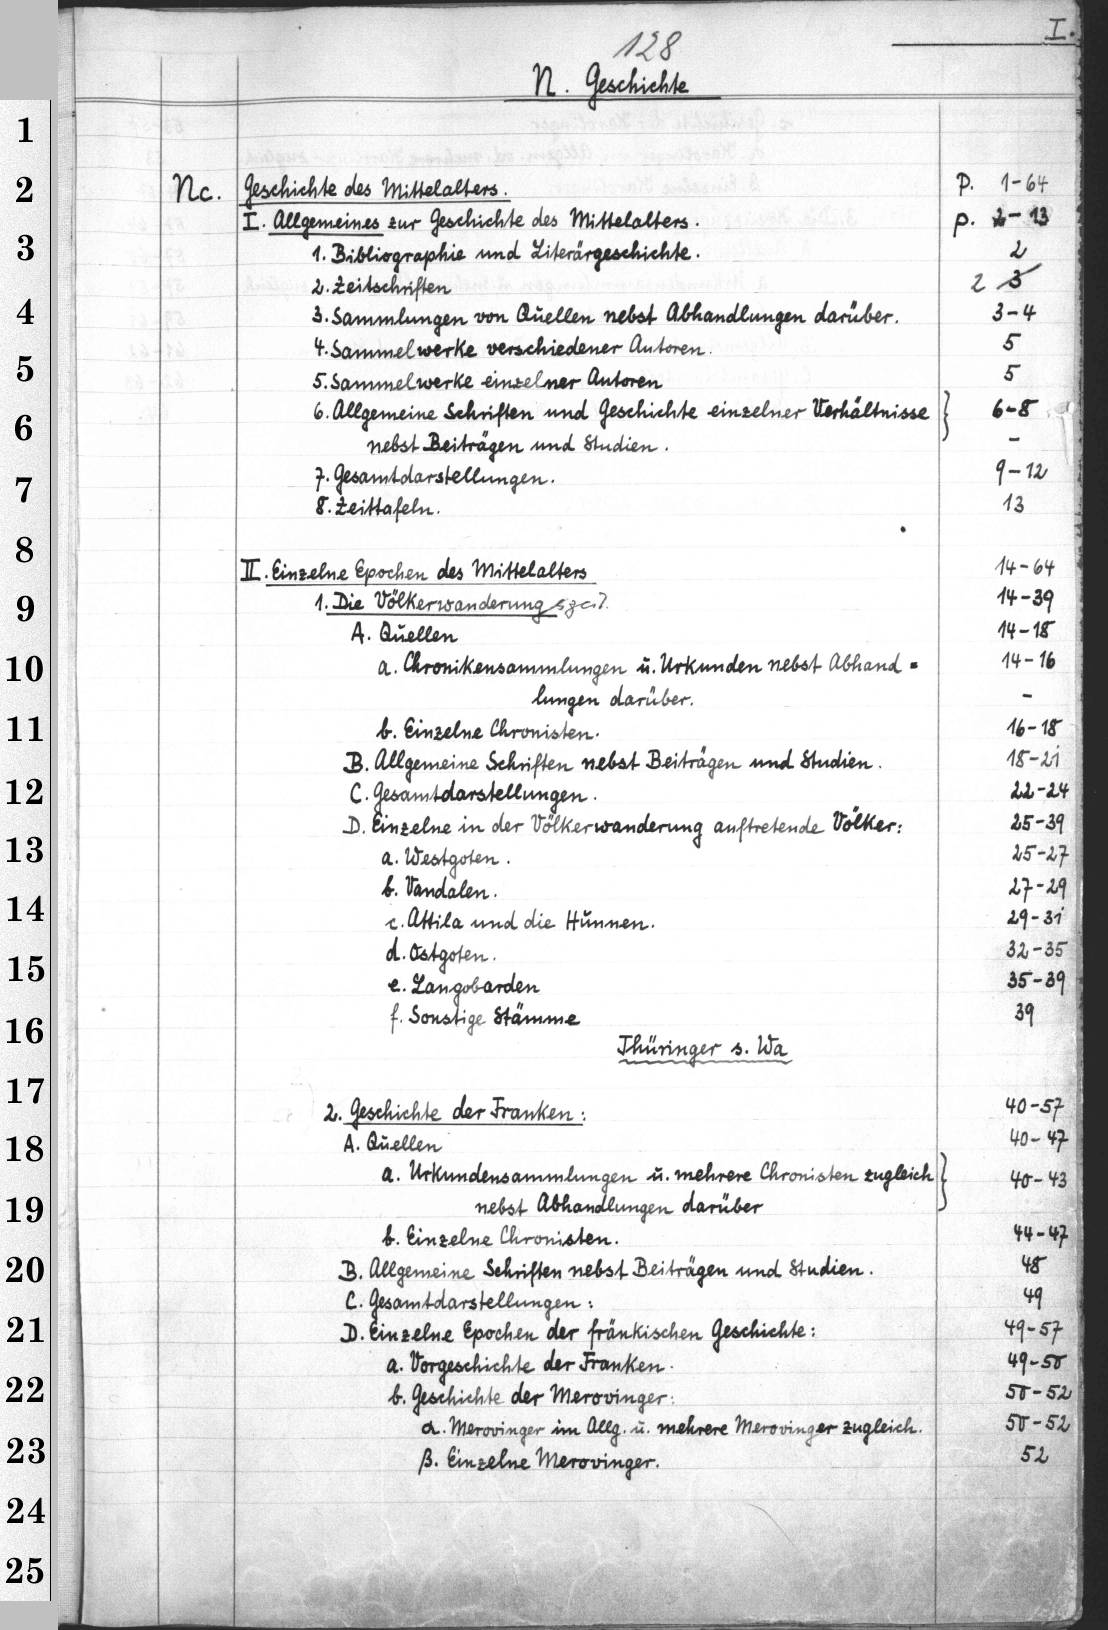 I.
128
N. Geschichte
1
2
3
4
5
6
7
8
9
10
11
12
13
14
15
16
17
18
19
20
21
22
23
24
25
Nc. Geschichte des Mittelalters. p. 1-64
I. Allgemeines zur Geschichte des Mittelalters. p. 2-13
1. Bibliographie und Literärgeschichte. 2
2. Zeitschriften 2 3
3. Sammlungen von Quellen nebst Abhandlungen darüber. 3-4
4. Sammelwerke verschiedener Autoren. 5
5. Sammelwerke einzelner Autoren 5
6. Allgemeine Schriften und Geschichte einzelner Verhältnisse } 6-8
nebst Beiträgen und Studien. -
7. Gesamtdarstellungen. 9-12
8. Zeittafeln. 13
II. Einzelne Epochen des Mittelalters 14-64
1. Die Völkerwanderung 14-39
A. Quellen 14-18
a. Chronikensammlungen u. Urkunden nebst Abhand=  14-16
lungen darüber. -
b. Einzelne Chronisten. 16-18
B. Allgemeine Schriften nebst Beiträgen und Studien. 18-21
C. Gesamtdarstellungen. 22-24
D. Einzelne in der Völkerwanderung auftretende Völker: 25-39
a. Westgoten. 25-27
b. Vandalen. 27-29
c. Attila und die Hunnen. 29-31
d. Ostgoten. 32-35
e. Langobarden 35-39
f. Sonstige Stämme 39
Thüringer s. Wa
2. Geschichte der Franken: 40-57
A. Quellen 40-47
a. Urkundensammlungen u. mehrere Chronisten zugleich } 40-43
nebst Abhandlungen darüber
b. Einzelne Chronisten. 44-47
B. Allgemeine Schriften nebst Beiträgen und Studien. 48
C. Gesamtdarstellungen: 49
D. Einzelne Epochen der fränkischen Geschichte: 49-57
a. Vorgeschichte der Franken. 49-50
b. Geschichte der Merovinger: 50-52
α. Merovinger im Allg. u. mehrere Merovinger zugleich. 50-52
β. Einzelne Merovinger. 52